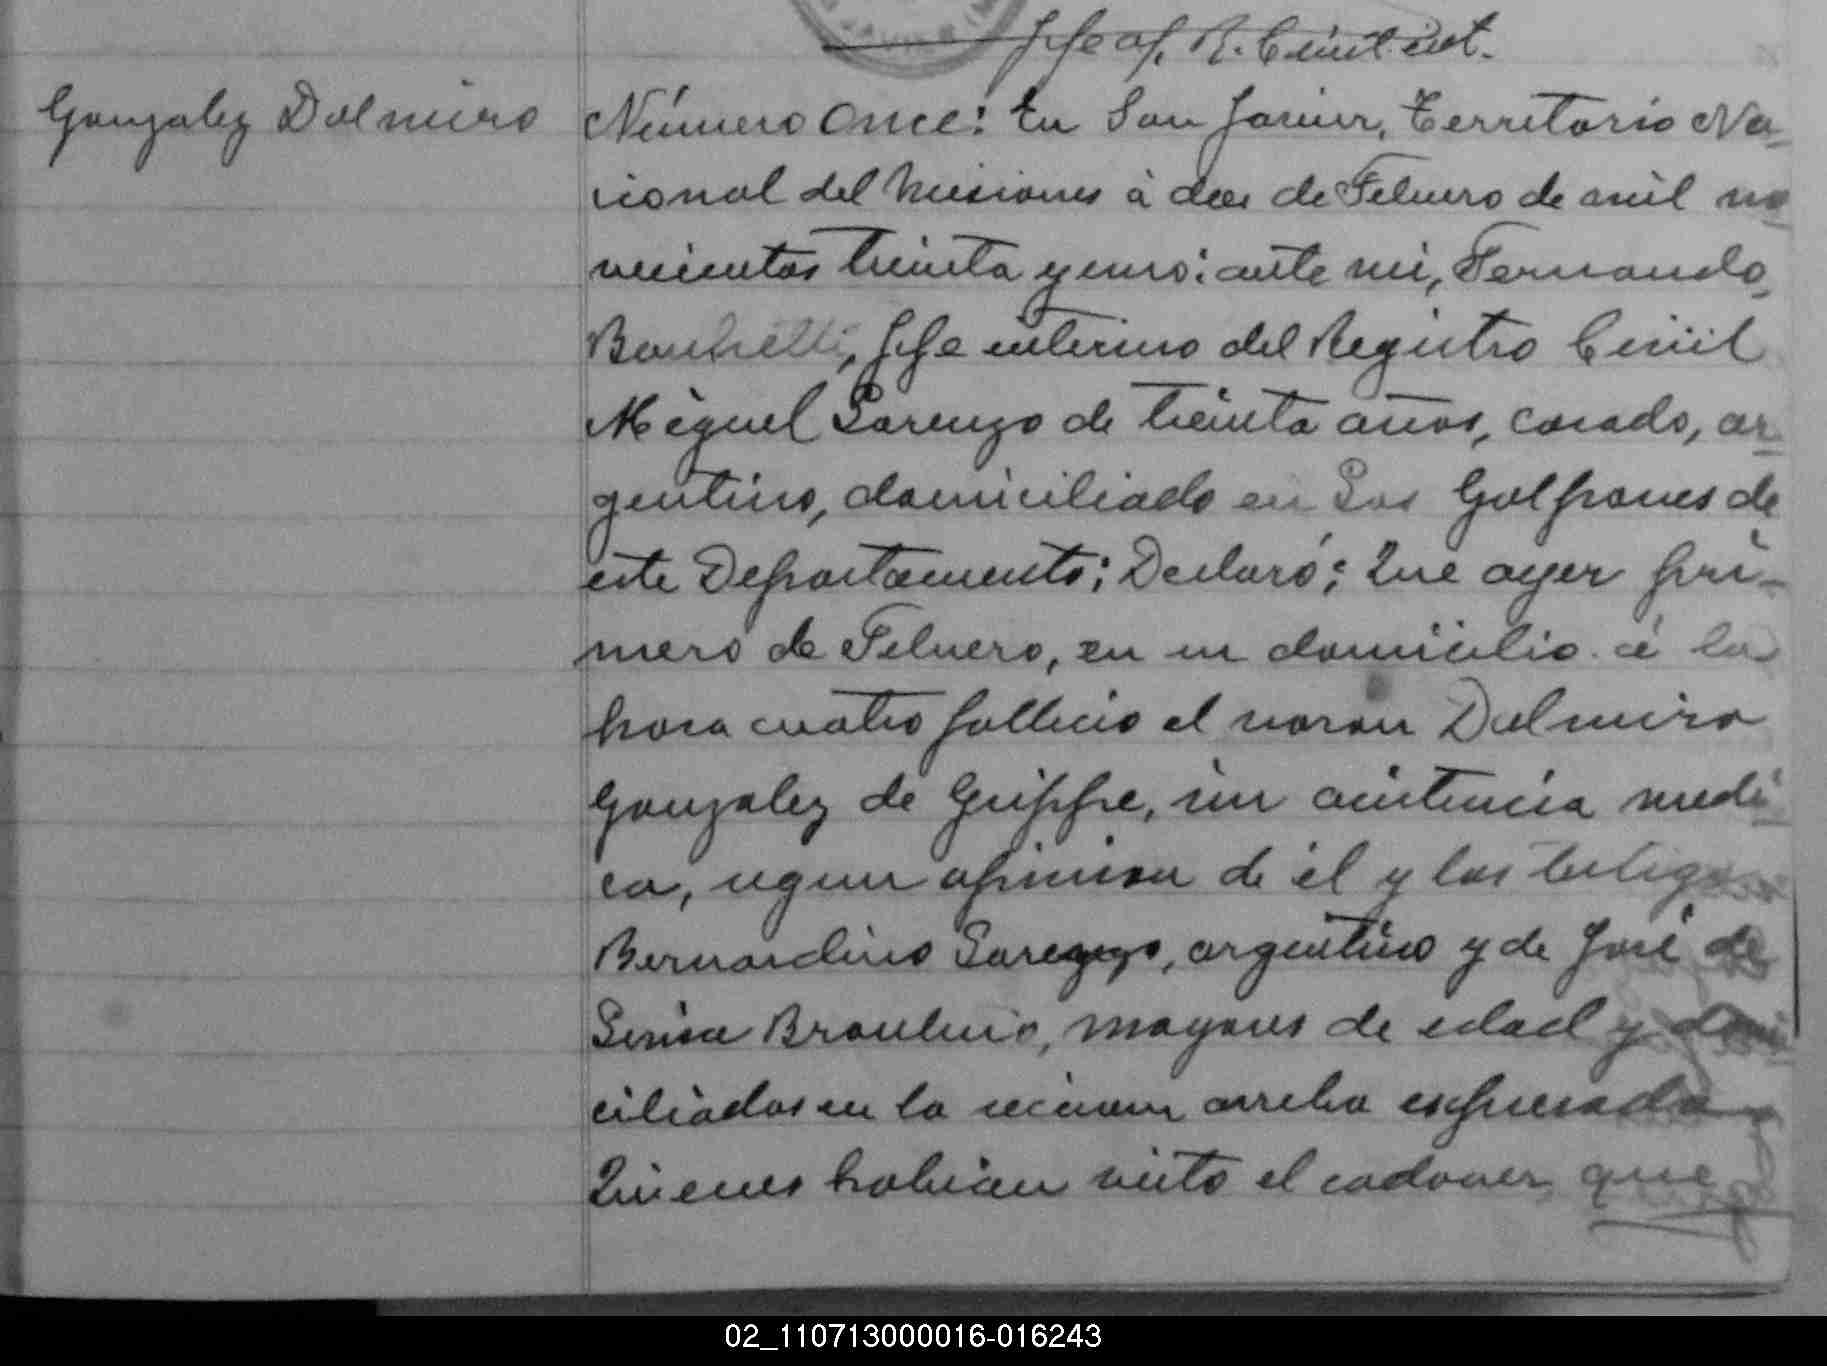 Jefe of. R. Civil int.
Gonzalez Dalmiro
Número Once: En San Javier, Territorio Na-
cional del Misiones à dos de Febrero de mil no
vecientos treinta y uno: ante mi, Fernando,
Jefe interino del Registro Civil
Miguel Lorenzo de treinta años, casado, ar-
gentino, domiciliado en Los Galpones de
este Departamento; Declaró: Que ayer pri-
mero de Febrero, en su domicilio á la
hora cuatro fallecio el varon Dalmiro
Gonzalez de Grippe, sin asistencia medi
ca, segun opinion de él y los testigos
Bernardino Lorenzo, argentino y de José de
mayores de edad y domi
ciliados en la seccion arriba expresada
Quienes habian visto el cadaver, que
02_110713000016-016243